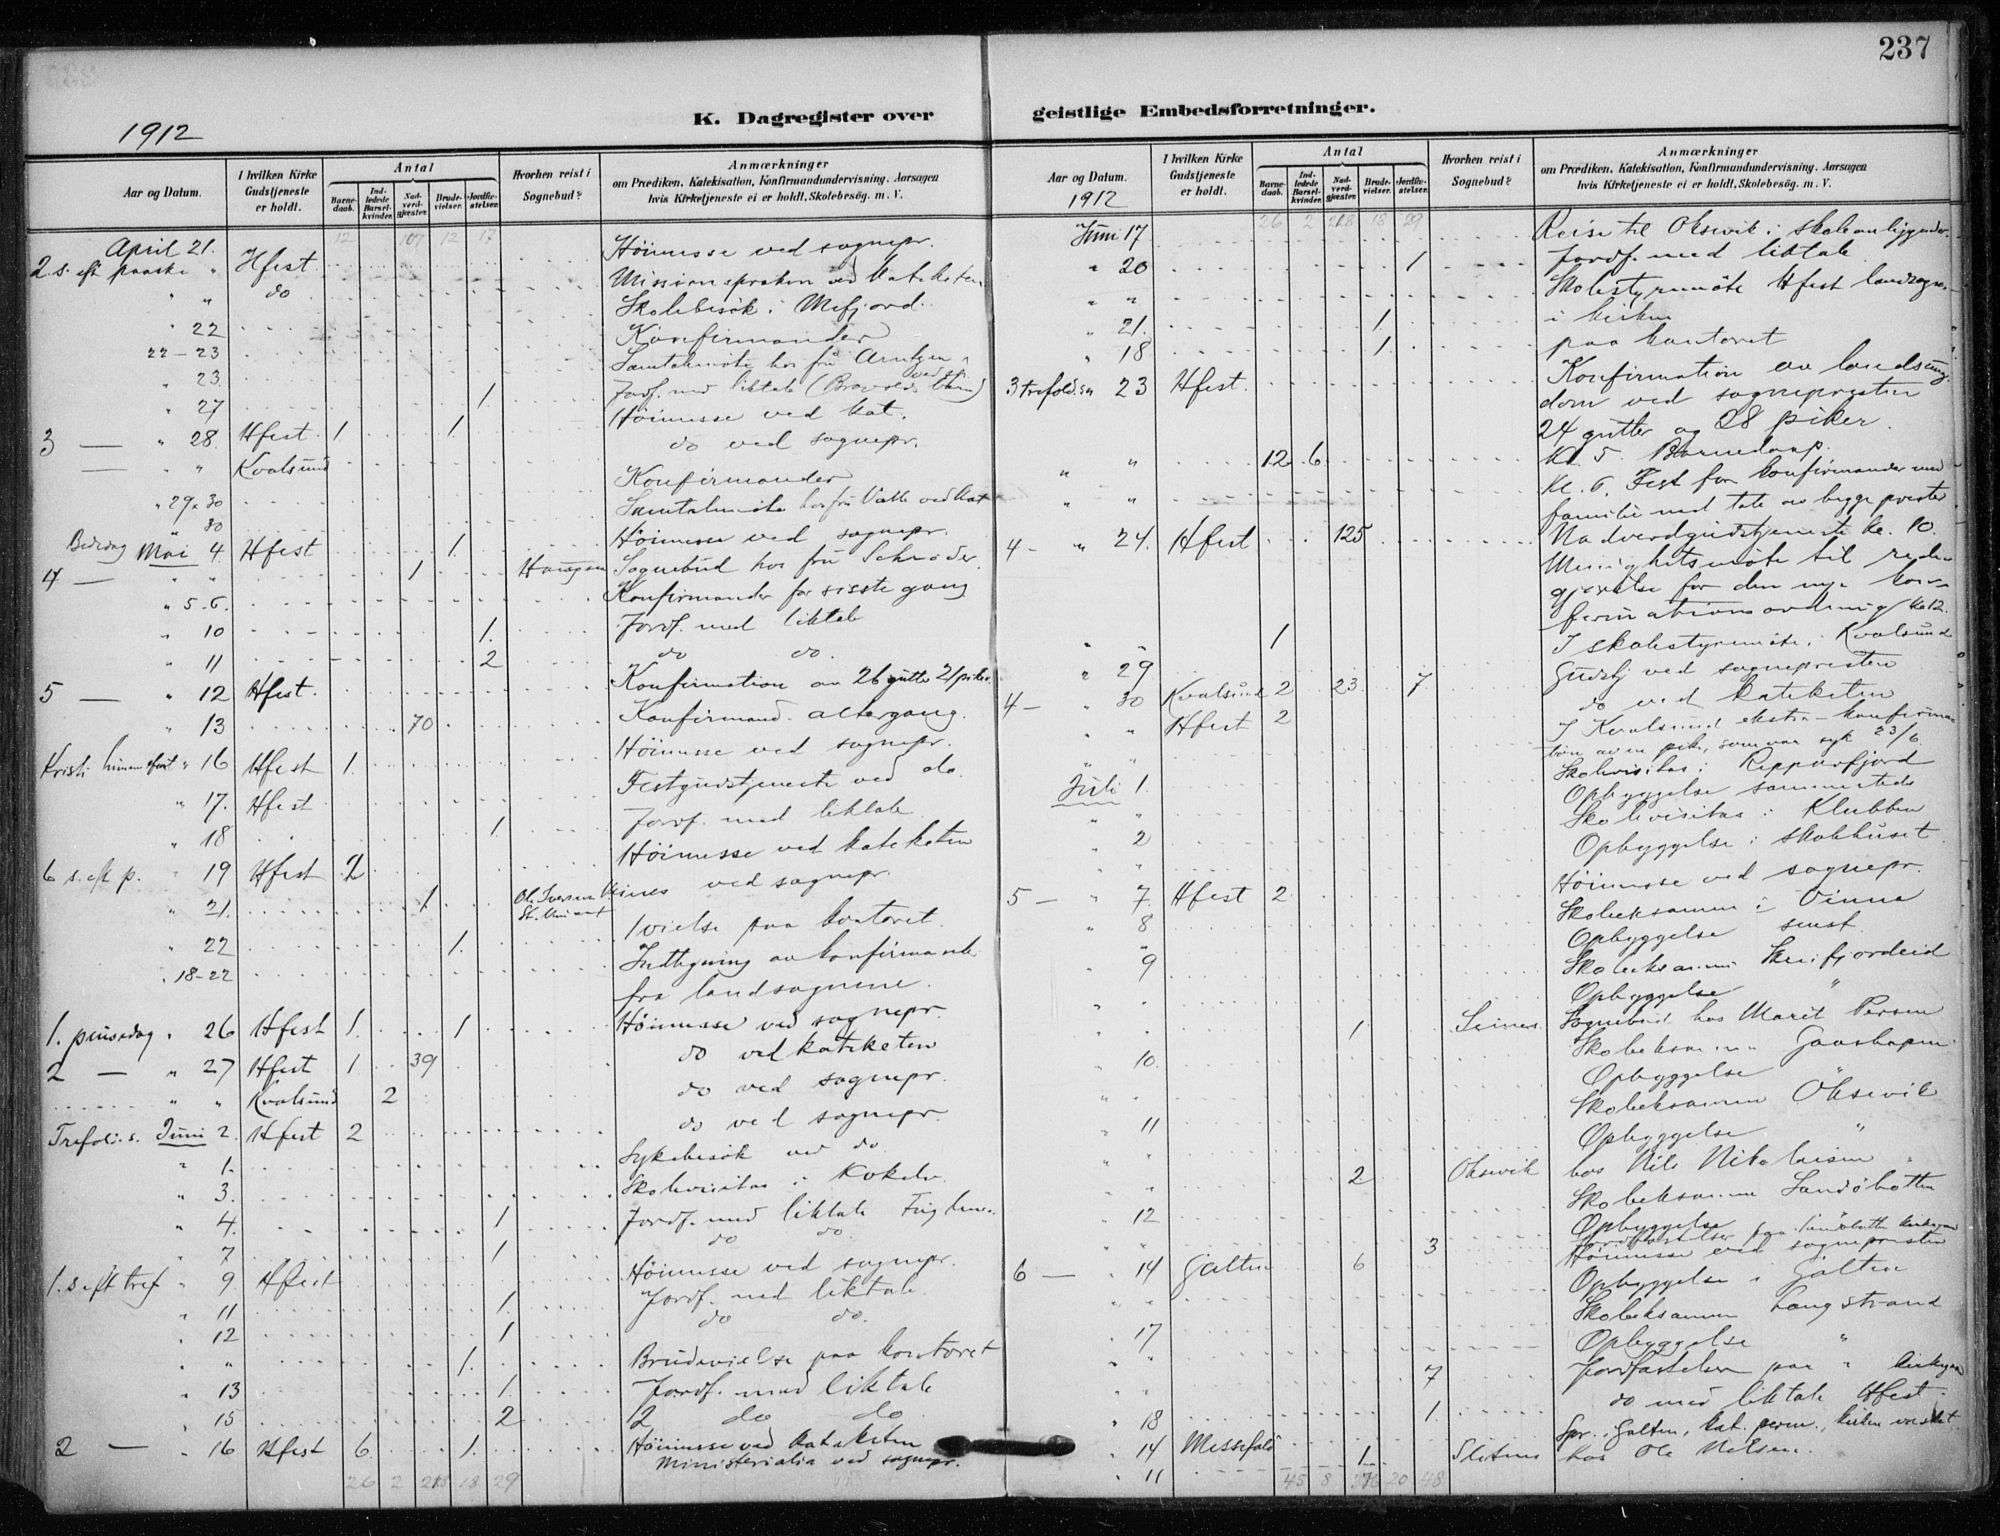 237
K. Dagregister over geistlige Embedsforretninger.
1912
Aar og Datum.
I hvilken Kirke Gudstjeneste er holdt.
Antal
Barnedaab.
Indledede Barselkvinder.
Nadverdgjester.
Brudevielser.
Jordfæstelser.
Hvorhen reist i Sognebud?
Anmærkninger
om Prædiken, Katekisation, Konfirmandundervisning, Aarsagen
hvis Kirketjeneste ei er holdt, Skolebesøg, m. V.
12 107 12 17
April 21. Høimesse ved sognepr.
2 s. eft paaske " Hfest Missionspræken ved kateketen
" " do Skolebesøk i Mefjord.
" 22 Konfirmander
22-23 Samtalemøte hos fru Arntzen
" 23. Jordf. med liktale
" 27 1 Høimesse ved kat.
3 — " 28. Hfest 1 1. do ved sognepr.
— " " Kvalsund Konfirmander
" 29 & 30 Samtalemøte hos fru ved kat
30 Høimesse ved sognepr.
Bededag Mai 4 Hfest 1. Sognebud hos fru Schrøder.
4 — " " 1 Konfirmander for sisste gang
" 5-6. Jordf. med liktale
" 10 1. do do
" 11 2
5 — " 12 Hfest. Konfirmation av 26 gutter 21 piker
" 13 70 Konfirmand. altergang.
Kristi himmelfart " 16 Hfest 1. Høimesse ved sognepr.
" 17. Hfest Festgudstjeneste ved do.
" 18 1 Jordf. med liktale
6 s. eft p. " 19 Hfest 2 Høimesse ved kateketen
" 21. 1 ved sognepr.
" 22 1. 1 vielse paa kontoret
" 18-22 Indtegning av konfirmander
fra landsognene.
1. pinsedag " 26 Hfest 1. 1 Høimesse ved sognepr.
2 — " 27 Hfest 1 39 do ved kateketen
" " Kvalsund 2 do ved sognepr.
Trefold. s. Juni 2. Hfest 2 do ved sognepr.
" 1. Sykebesøk ved do
" 3. Skolevisitas i Kokelv
" 4. 1 Jordf. med liktale
" 7 1 do do.
1. s. eft tref " 9 Hfest Høimesse ved sognepr.
" 11 1. Jordf. med liktale.
" 12 1 do do.
" " 1. Brudevielse paa kontoret
" 13 1. Jordf. med liktale
" 15 2 2 do do
2 — " 16 Hfest 6 1. Høimesse ved kateketen
Ministerialia ved sognepr.
26 2 218 18 29
Aar og Datum.
1912
I hvilken Kirke Gudstjeneste er holdt.
Antal
Barnedaab.
Indledede Barselkvinder.
Nadverdgjester.
Brudevielser.
Jordfæstelser.
Hvorhen reist i Sognebud?
Anmærkninger
om Prædiken, Katekisation, Konfirmandundervisning, Aarsagen
hvis Kirketjeneste ei er holdt, Skolebesøg, m. V.
26 2 218 18 29
Juni 17 Reise til Oksevik i skoleanliggender.
" 20 1 Jordf. med liktale.
" " Skolestyremøte Hfest landsogn
" 21. 1 i kirken
" 18 1. paa kontoret
3 trefold. sn 23 Hfest. Konfirmation av landsung-
dom ved sognepresten
24 gutter og 28 piker.
" " 12 6 Kl. 5 Barnedaap.
" " Kl. 6. Fest for konfirmander med
familie med tale av begge prester
4 — " 24. Hfest 125 Nadverdgudstjeneste kl. 10.
Menighetsmøte til rede-
gjørelse for den nye kon-
firmationsordning kl 12.
" " 1 I skolestyremøte i Kvalsund
" 29
4 — " 30 Kvalsund 2 23 7 Gudstj ved sognepresten
" " Hfest 2 do ved kateketen
I Kvalsund ekstra-konfirma-
tion av en pike, som var syk 23/6
Juli 1. Skolevisitas i Repparfjord
" " Opbyggelse sammesteds
" 2 Skolevisitas i Klubben
Opbyggelse i skolehuset.
5 — " 7. Hfest 2 Høimesse ved sognepr.
" 8 Skoleeksamen i
Opbyggelse smst.
" 9 Skoleeksamen
Opbyggelse "
" " 1 Seines Sognebud hos Marit Persen
" 10. Skoleeksamen
Opbyggelse
" 11 Skoleeksamen Oksevik
Opbyggelse "
" " 2 Oksevik hos Nils Nikolaisen
" 12 Skoleeksamen Sandøbotten
Opbyggelse
" " 3 Jordfæstelser paa Sandøbotten kirkegaard
6 — " 14 Galten 6 Høimesse ved sognepresten
" " Opbyggelse i Galten
" 17 Skoleeksamen Langstrand
" " Opbyggelse "
" " 7 Jordfæstelser paa "
" 18 1. do med liktale Hfest.
" 14 Messefald
" 11 1 hos Ole Nilsen.
45 8 20 48